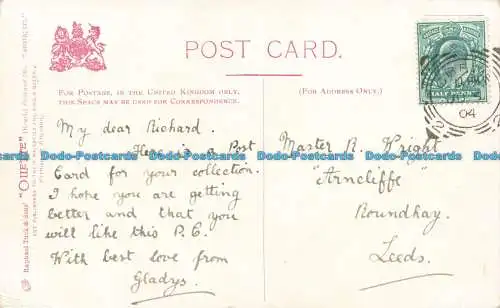 POST CARD.
FOR POSTAGE, IN THE UNITED KINGDOM ONLY,
THIS SPACE MAY BE USED FOR CORRESPONDENCE.
(FOR ADDRESS ONLY.)
HALF PENNY
04
My dear Richard.
Here is a Post
Card for your collection.
I hope you are getting
better and that you
will like this P.C.
With best love from
Gladys.
Master R. Wright
"Arncliffe"
Roundhay.
Leeds.
Raphael Tuck & Sons' "OILETTE"
Dodo-Postcards Dodo-Postcards Dodo-Postcards Dodo-Postcards Dodo-Postcards